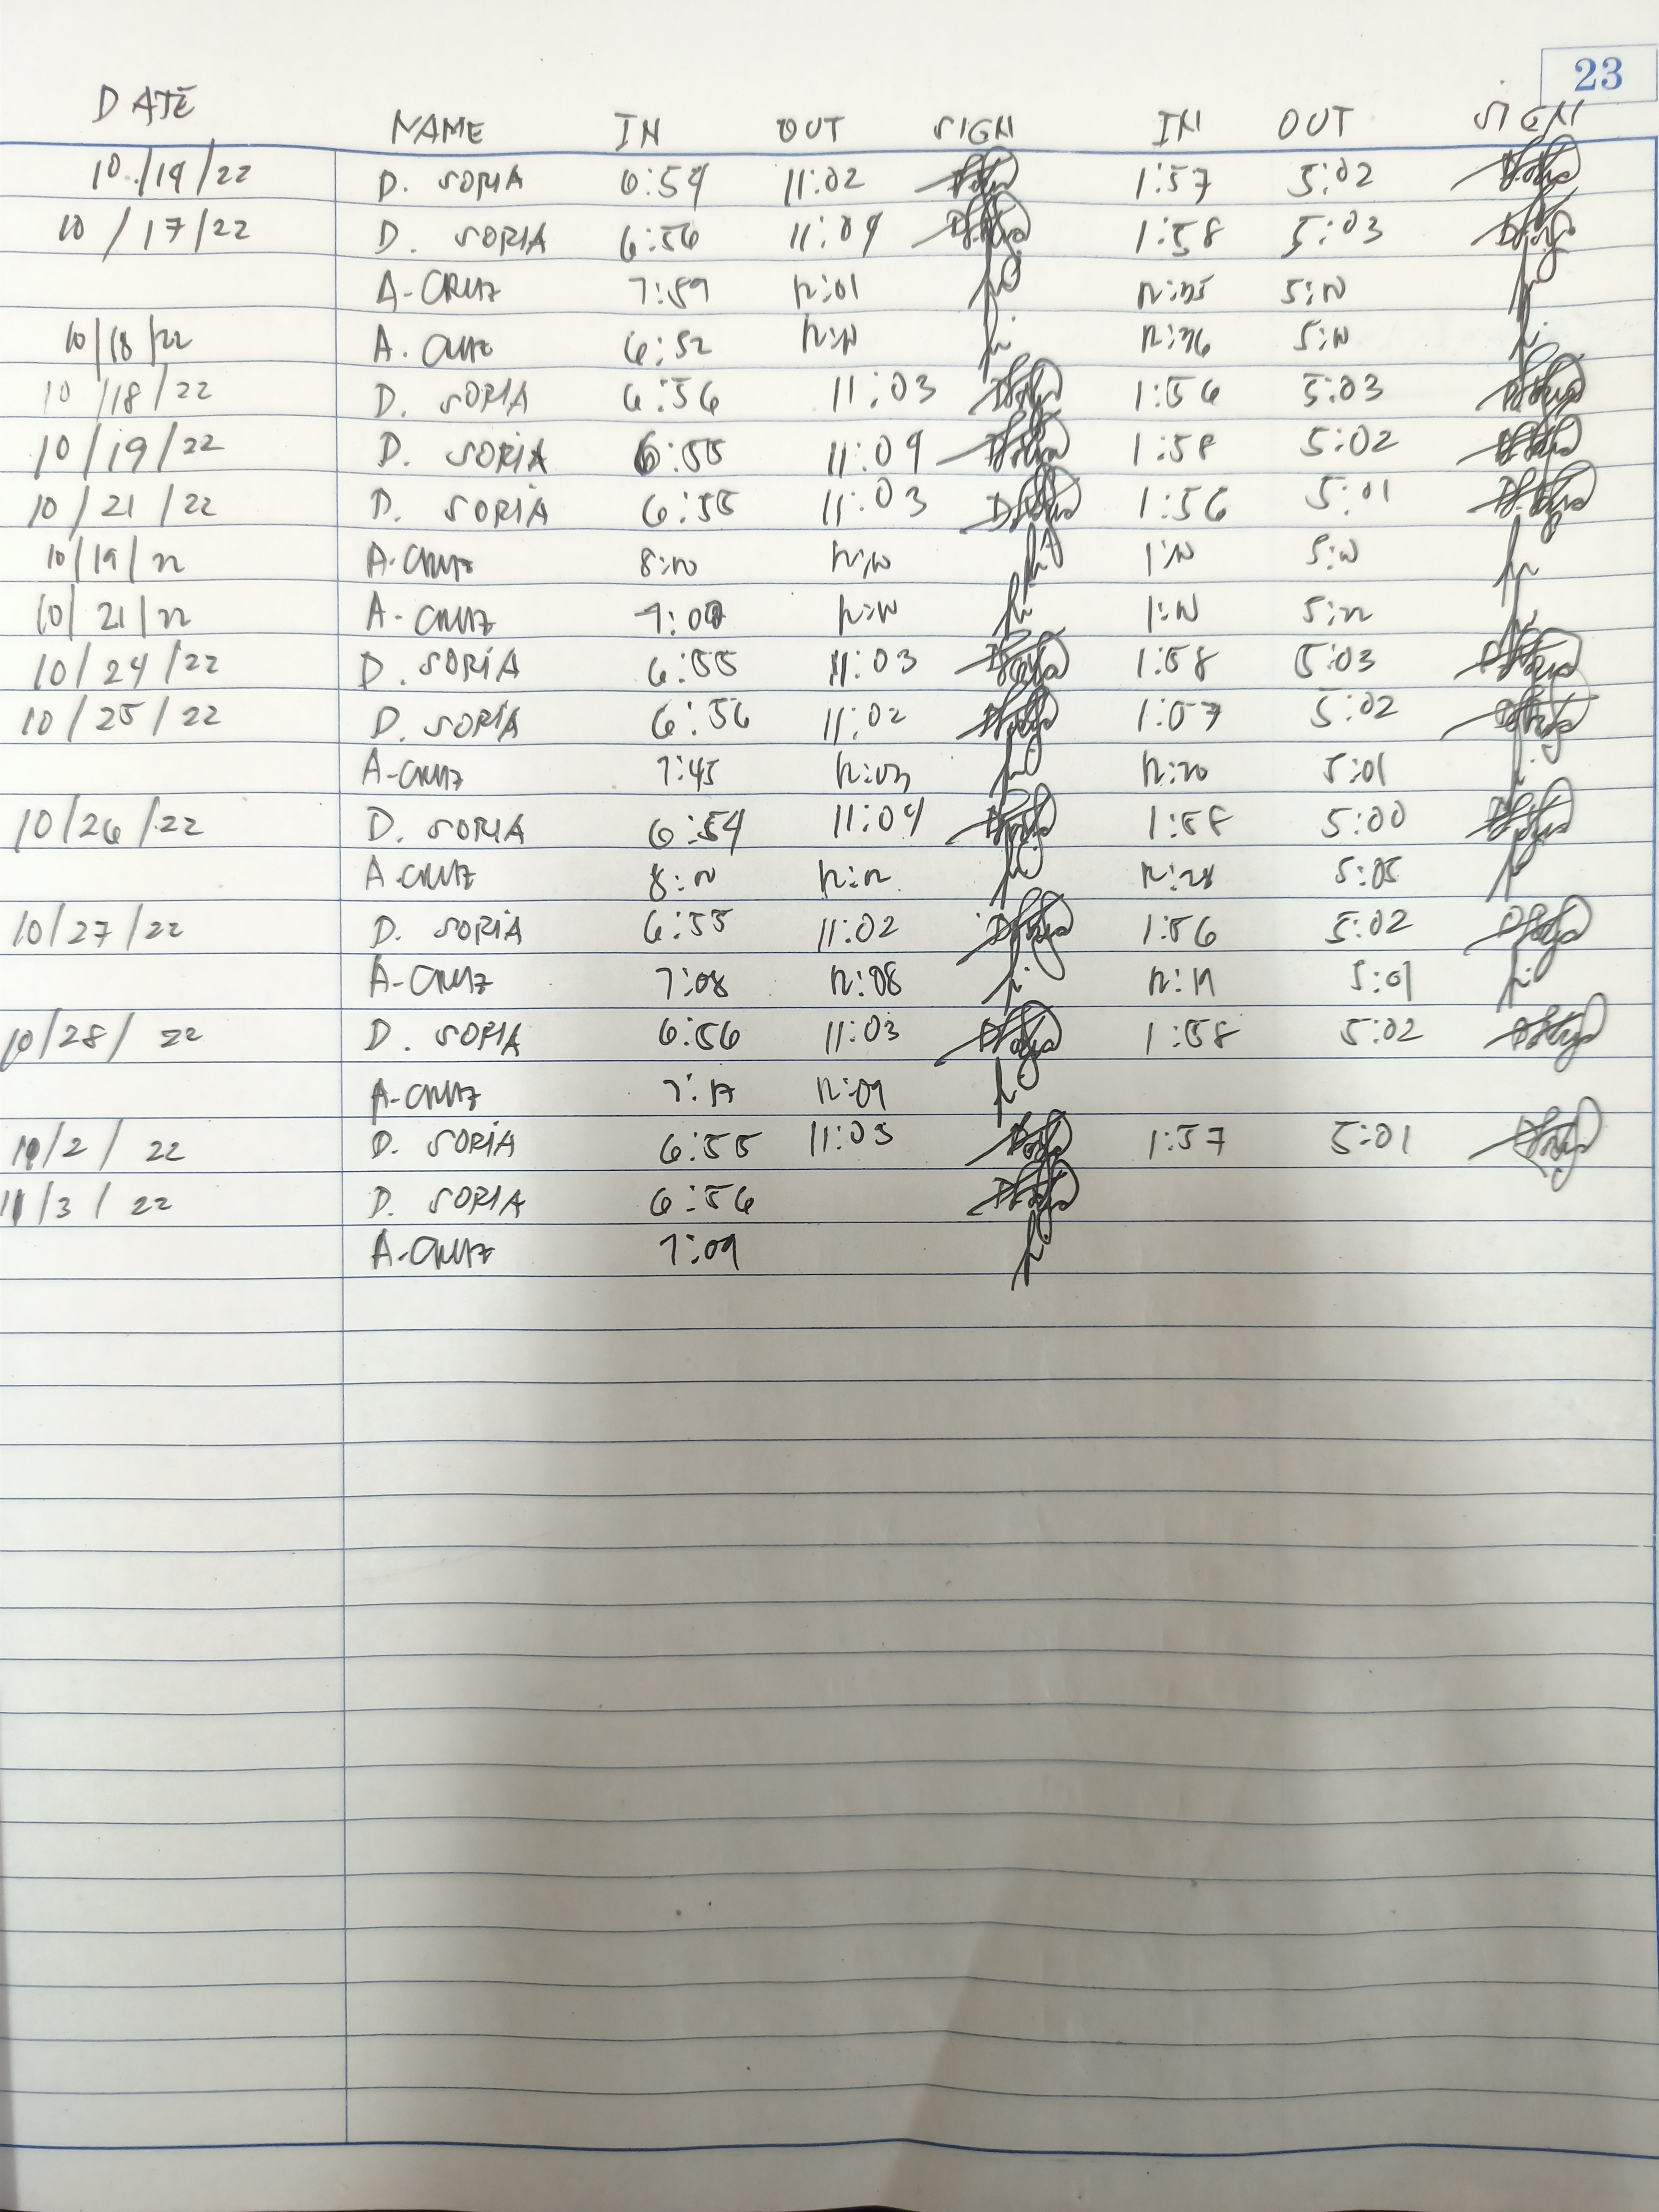 23
DATE NAME IN OUT SIGN IN OUT SIGN
10/14/22 D. SORIA 6:54 11:02 1:57 5:02
10/17/22 D. SORIA 6:56 11:04 1:58 5:03
A-CRUZ 7:59 12:01 5:10
10/18/22 A. CRUZ 6:52 5:10
10/18/22 D. SORIA 6:56 11:03 1:56 5:03
10/19/22 D. SORIA 6:55 11:04 1:58 5:02
10/21/22 D. SORIA 6:55 11:03 1:56 5:01
10/19/22 A-CRUZ
10/21/22 A-CRUZ
10/24/22 D. SORIA 6:55 11:03 1:58 5:03
10/25/22 D. SORIA 6:56 11:02 1:57 5:02
A-CRUZ 7:45 5:01
10/26/22 D. SORIA 6:54 11:04 1:58 5:00
A-CRUZ 12:28 5:05
10/27/22 D. SORIA 6:55 11:02 1:56 5:02
A-CRUZ 7:08 12:08 5:01
10/28/22 D. SORIA 6:56 11:03 1:58 5:02
A-CRUZ 12:09
11/2/22 D. SORIA 6:55 11:03 1:57 5:01
11/3/22 D. SORIA 6:56
A-CRUZ 7:09